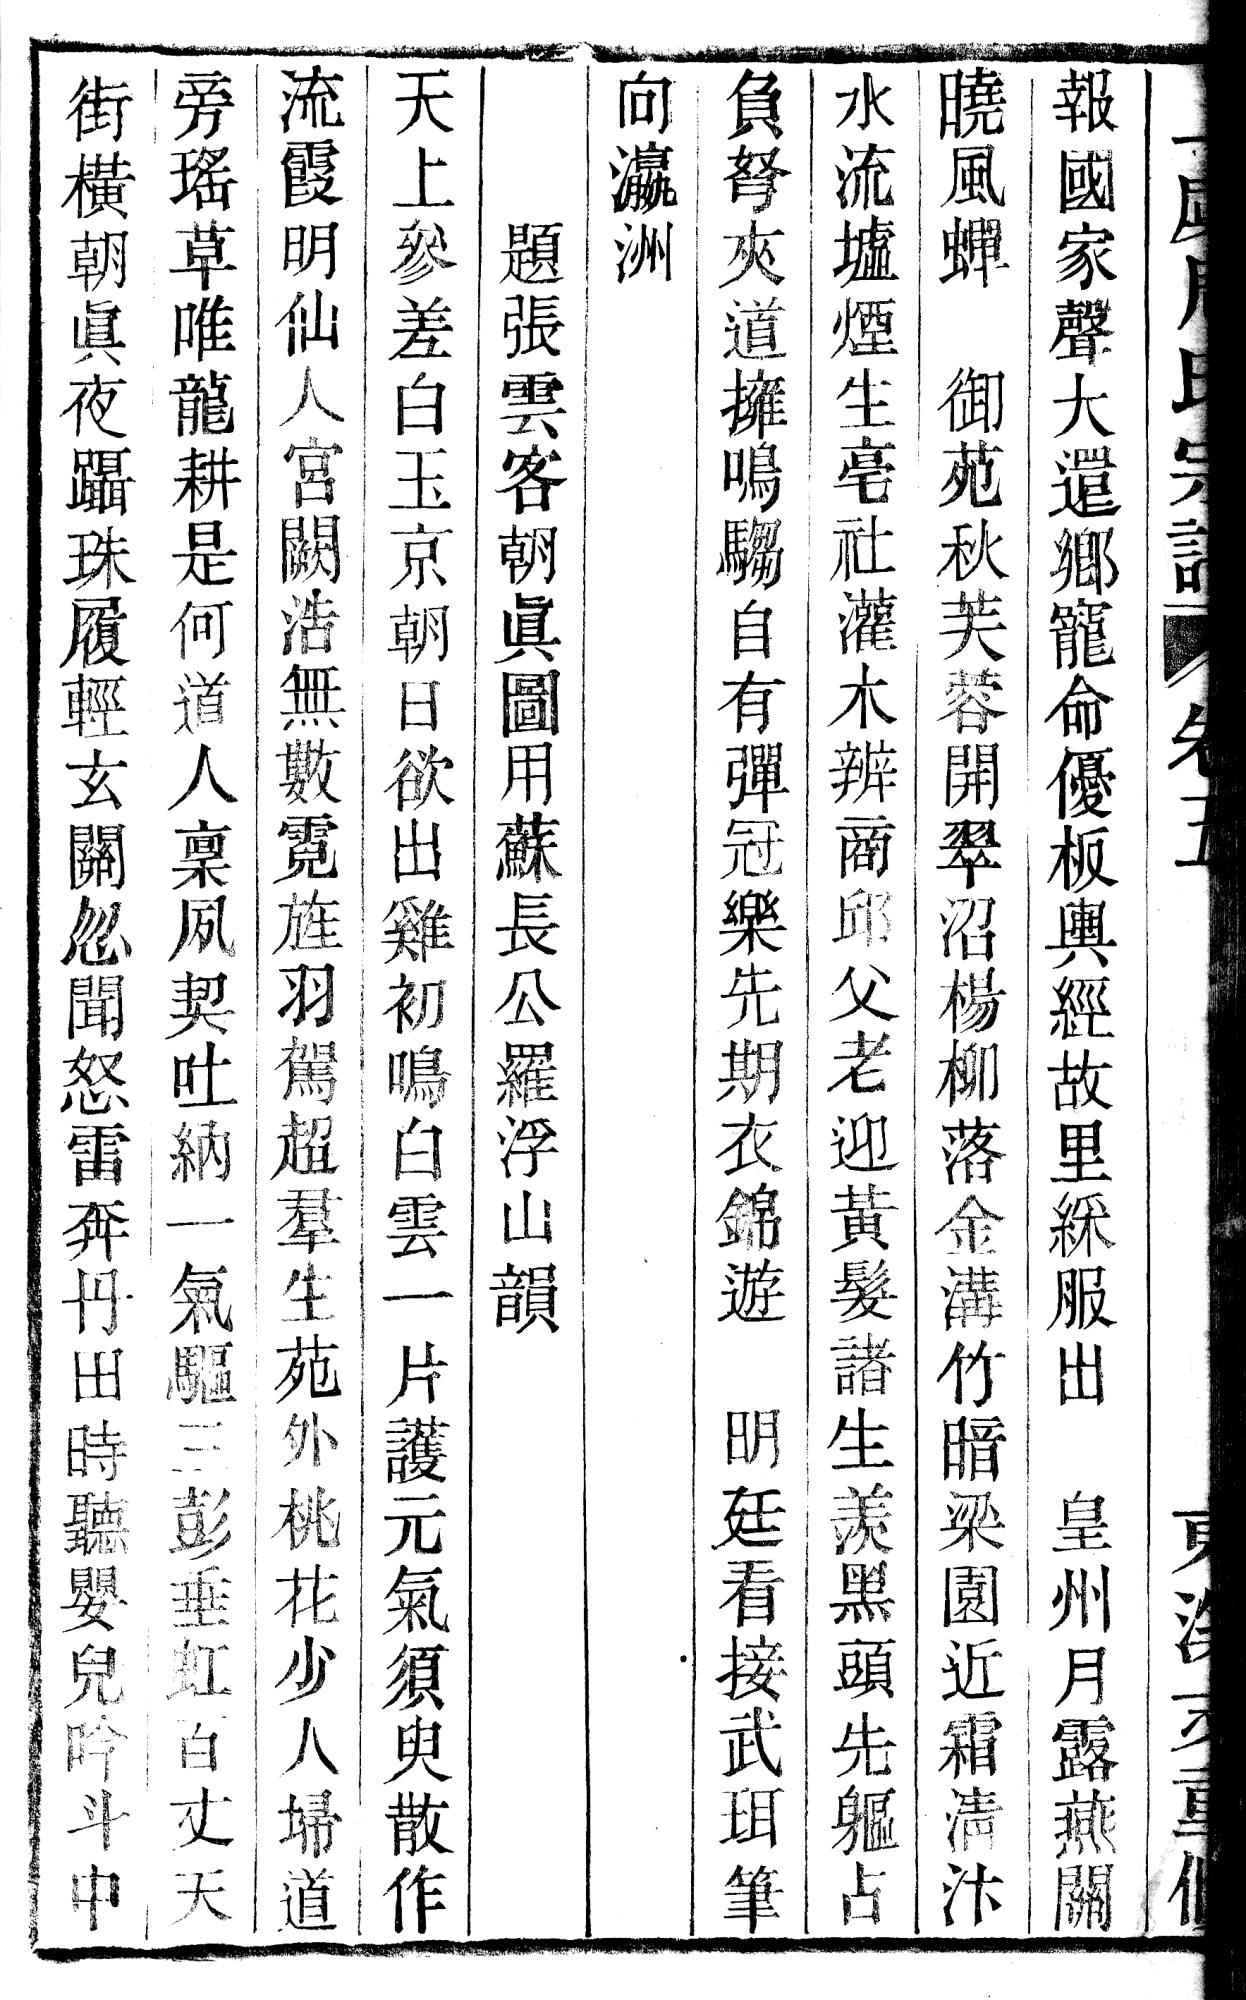 氏宗譜 卷五
報國家聲大還鄉寵命優板輿經故里綵服出　皇州月露燕關
曉風蟬　御苑秋芙蓉開翠沼楊柳落金溝竹暗梁園近霜淸汴
水流墟煙生亳社灌木辨商邱父老迎黃髮諸生羨黑頭先軀占
負弩夾道擁鳴騶自有彈冠樂先期衣錦遊　明廷看接武珥筆
向瀛洲
題張雲客朝眞圖用蘇長公羅浮山韻
天上參差白玉京朝日欲出雞初鳴白雲一片護元氣須臾散作
流霞明仙人宮闕浩無數霓旌羽駕超羣生苑外桃花少人埽道
旁瑤草唯龍耕是何道人稟夙契吐納一氣驅三彭垂虹百丈天
街橫朝眞夜躡珠履輕玄關忽聞怒雷奔丹田時聽嬰兒吟斗中